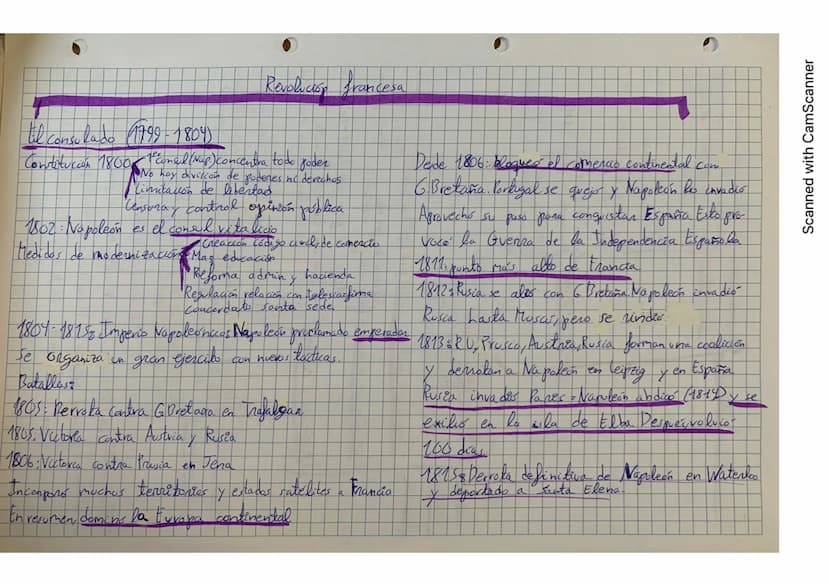 Revolución francesa
El consulado (1799-1804)
Constitución 1800
1er consul (Nap) concentra todo poder
No hay división de poderes ni derechos
Limitación de libertad
Censura y control opinión pública
1802: Napoleón es el consul vitalicio
Medidas de modernización
Creacción código civil, de comercio
Mag educación
Reforma admin y hacienda
Regulación relación con Iglesia: firma
Concordato santa sede
1804-1815: Imperio Napoleónico: Napoleón proclamado emperador
Se organiza un gran ejercito con nuevas tacticas.
Batallas:
1805: Derrota contra G Bretaña en Trafalgar
1805: Victoria contra Austria y Rusia
1806: Victoria contra Prusia en Jena
Incorporó muchos territorios y estados satelites a Francia
En resumen dominó la Europa continental
Desde 1806: bloqueó el comercio continental con
G.Bretaña. Portugal se quejó y Napoleón lo invadió
Aprovechó su paso para conquistar España Esto pro
vocó la Guerra de la Independencia Española
1811: punto más alto de Francia
1812: Rusia se alió con G Bretaña Napoleón invadió
Rusia hasta Moscú, pero se rindió
1813: R.U, Prusia, Austria, Rusia forman una coalición
y derrotan a Napoleón en Leipzig y en España
Rusia invadió Paris = Napoleón abdicó (1814) y se
exilió en la isla de Elba Después, volvió
100 días
1815: Derrota definitiva de Napoleón en Waterloo
y deportado a Santa Elena.
Scanned with CamScanner